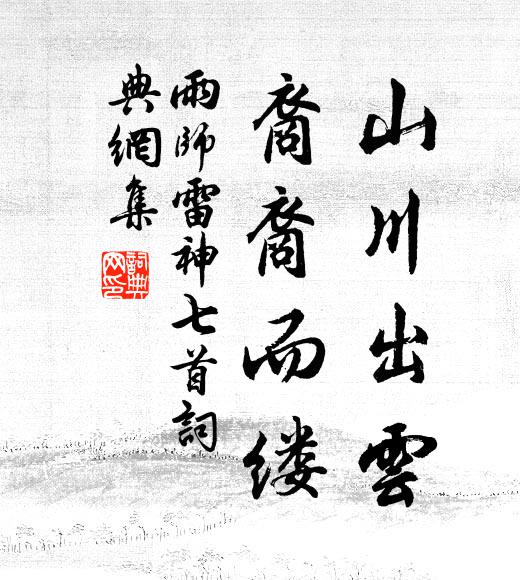 山川出雲
裔裔而缕
雨師雷神七首詞
典網集
詞典
网印